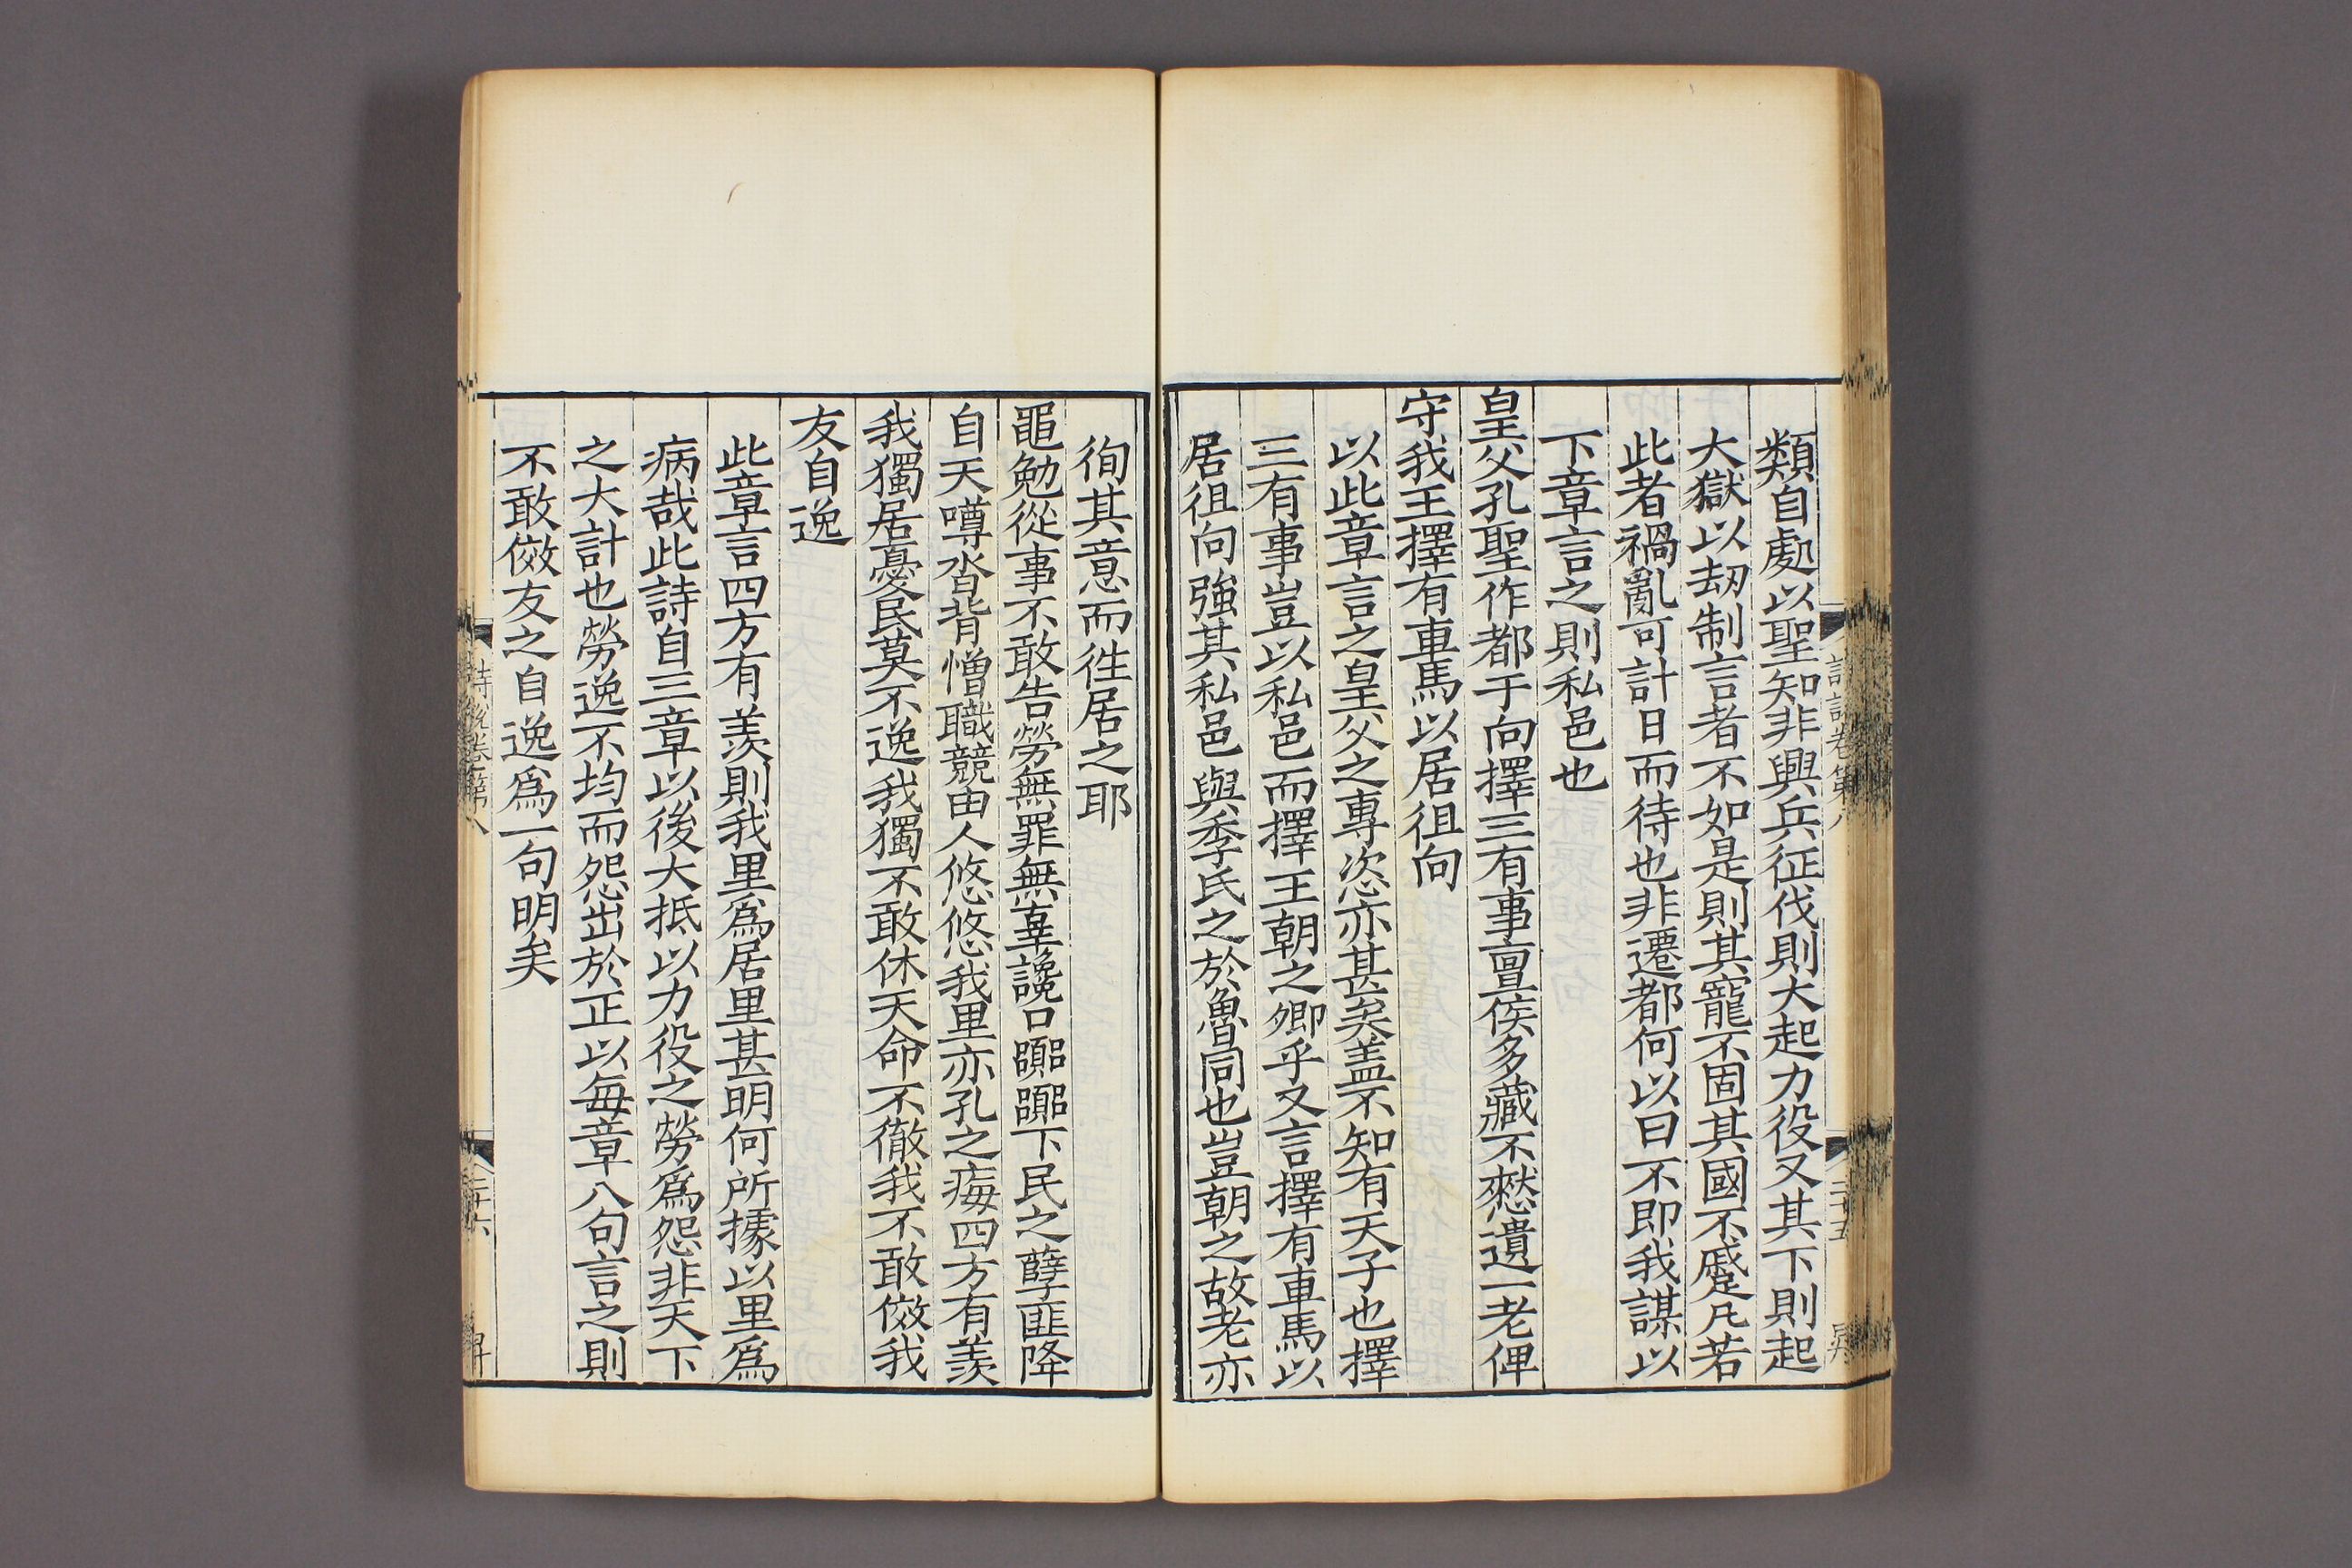 類自處以聖知非興兵征伐則大起力役又其下則起
大獄以刼制言者不如是則其寵不固其國不蹙凡若
此者禍亂可計日而待也非遷都何以曰不即我謀以
下章言之則私邑也
皇父孔聖作都于向擇三有事亶侯多藏不憖遺一老俾
守我王擇有車馬以居徂向
以此章言之皇父之專恣亦甚矣盖不知有天子也擇
三有事豈以私邑而擇王朝之卿乎又言擇有車馬以
居徂向強其私邑與季氏之於魯同也豈朝之故老亦
徇其意而徃居之耶
黽勉從事不敢告勞無罪無辜讒口嚻嚻下民之孽匪降
自天噂沓背憎職競由人悠悠我里亦孔之痗四方有羨
我獨居憂民莫不逸我獨不敢休天命不徹我不敢傚我
友自逸
此章言四方有羨則我里爲居里甚明何所據以里爲
病哉此詩自三章以後大抵以力役之勞爲怨非天下
之大計也勞逸不均而怨出於正以每章八句言之則
不敢傚友之自逸爲一句明矣
詩說卷第八
二十六